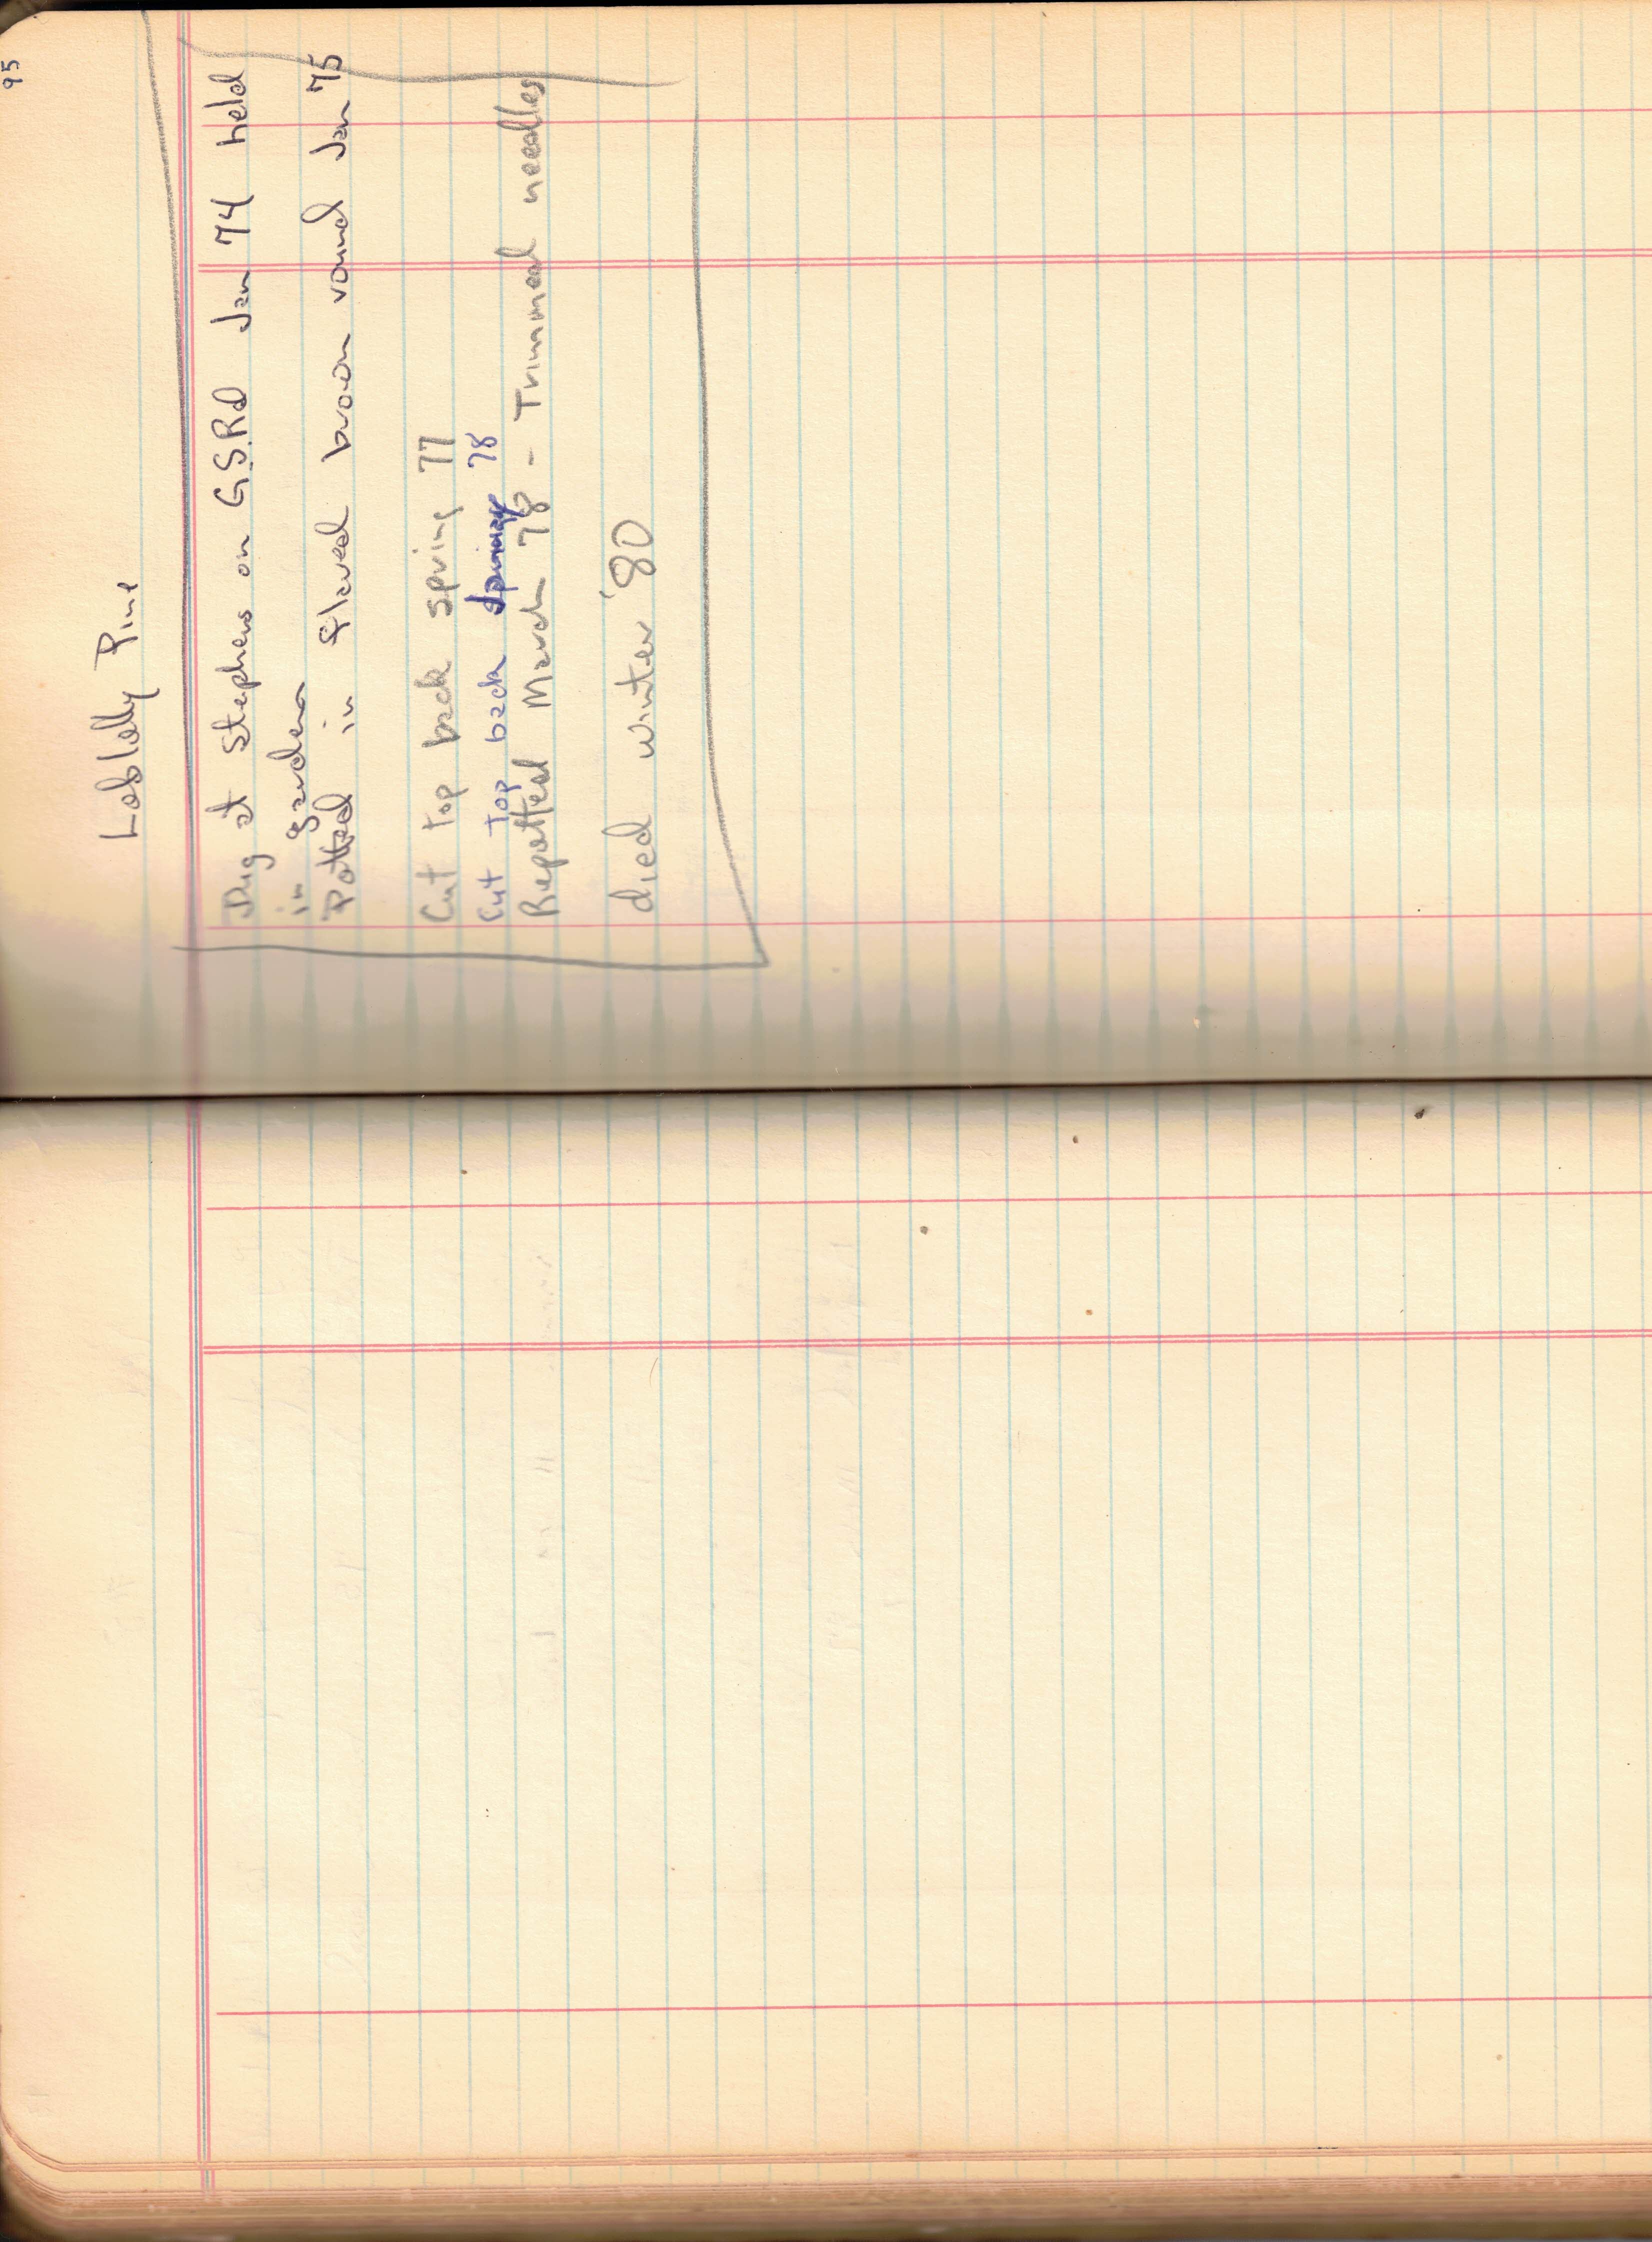 95
Loblolly Pine
Dug at Stephens on G.S.Rd Jan 74 held
in garden
Potted in flared brown round Jan 75
Cut top back spring 77
Cut top back spring 78
Repotted March 78 - Trimmed needles
died winter '80